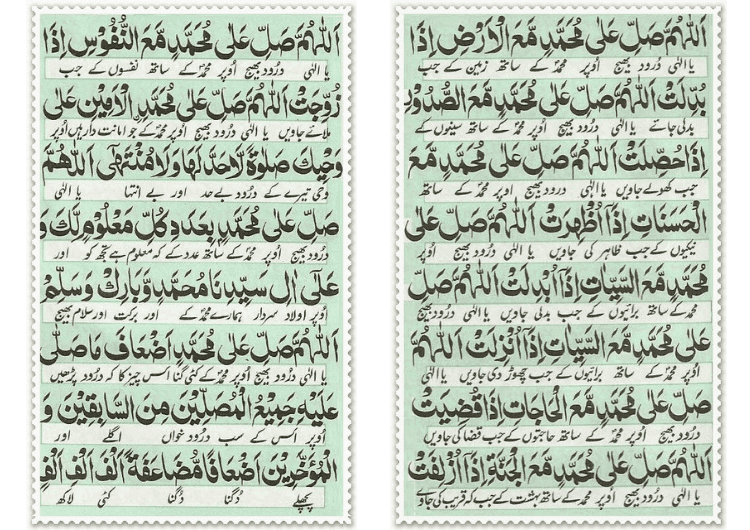 اَللّٰهُمَّ صَلِّ عَلٰى مُحَمَّدٍ مَّعَ الْاَرْضِ اِذَا
یا الٰہی درُود بھیج اُوپر محمدؐ کے ساتھ زمین کے جب
بُدِّلَتْ اَللّٰهُمَّ صَلِّ عَلٰى مُحَمَّدٍ مَّعَ الصُّدُوْرِ
بدلی جائے یا الٰہی درُود بھیج اُوپر محمدؐ کے ساتھ سینوں کے
اِذَا حُصِّلَتْ اَللّٰهُمَّ صَلِّ عَلٰى مُحَمَّدٍ مَّعَ
جب کھولے جاویں یا الٰہی درُود بھیج اُوپر محمدؐ کے ساتھ
الْحَسَنَاتِ اِذَآ اُظْهِرَتْ اَللّٰهُمَّ صَلِّ عَلٰى
نیکیوں کے جب ظاہر کی جاویں یا الٰہی درُود بھیج اُوپر
مُحَمَّدٍ مَّعَ السَّيِّاٰتِ اِذَآ اُبْدِلَتْ اَللّٰهُمَّ صَلِّ
محمدؐ کے ساتھ برائیوں کے جب بدلی جاویں یا الٰہی درُود بھیج
عَلٰى مُحَمَّدٍ مَّعَ السَّيِّاٰتِ اِذَآ اُنْزِلَتْ اَللّٰهُمَّ
اُوپر محمدؐ کے ساتھ برائیوں کے جب چھوڑ دی جاویں یا الٰہی
صَلِّ عَلٰى مُحَمَّدٍ مَّعَ الْحَاجَاتِ اِذَا قُضِيَتْ
درُود بھیج اُوپر محمدؐ کے ساتھ حاجتوں کے جب قضا کی جاویں
اَللّٰهُمَّ صَلِّ عَلٰى مُحَمَّدٍ مَّعَ الْجَنَّةِ اِذَآ اُزْلِفَتْ
یا الٰہی درُود بھیج اُوپر محمدؐ کے ساتھ بہشت کے جب کہ قریب کی جاوے
اَللّٰهُمَّ صَلِّ عَلٰى مُحَمَّدٍ مَّعَ النُّفُوْسِ اِذَا
یا الٰہی درُود بھیج اُوپر محمدؐ کے ساتھ نفسوں کے جب
زُوِّجَتْ اَللّٰهُمَّ صَلِّ عَلٰى مُحَمَّدٍ الْاَمِيْنِ عَلٰى
ملائے جاویں یا الٰہی درُود بھیج اُوپر محمدؐ کے جو امانت دار ہیں اُوپر
وَحْيِكَ صَلٰوةً لَّاحَدَّ لَهَا وَلَا مُنْتَهٰى اَللّٰهُمَّ
وحی تیرے کے درُود بے حد اور بے انتہا یا الٰہی
صَلِّ عَلٰى مُحَمَّدٍ بِعَدَدِ كُلِّ مَعْلُوْمٍ لَّكَ وَ
درُود بھیج اُوپر محمدؐ کے ساتھ عدد کے کہ معلوم ہے تجھ کو اور
عَلٰٓى اٰلِ سَيِّدِنَا مُحَمَّدٍ وَّبَارِكْ وَسَلِّمْ
اُوپر اولاد سردار ہمارے محمدؐ کے اور برکت اور سلام بھیج
اَللّٰهُمَّ صَلِّ عَلٰى مُحَمَّدٍ اَضْعَافَ مَا صَلّٰى
یا الٰہی درُود بھیج اُوپر محمدؐ کے کئی گنا اس چیز کا کہ درُود پڑھیں
عَلَيْهِ جَمِيْعُ الْمُصَلِّيْنَ مِنَ السَّابِقِيْنَ وَ
اُوپر اُس کے سب درُود خواں اگلے اور
الْمُؤَخَّرِيْنَ اَضْعَافًا مُّضَاعَفَةً اَلْفَ اَلْفِ اَلْفٍ
پچھلے دُگنا دُگنا کئی لاکھ